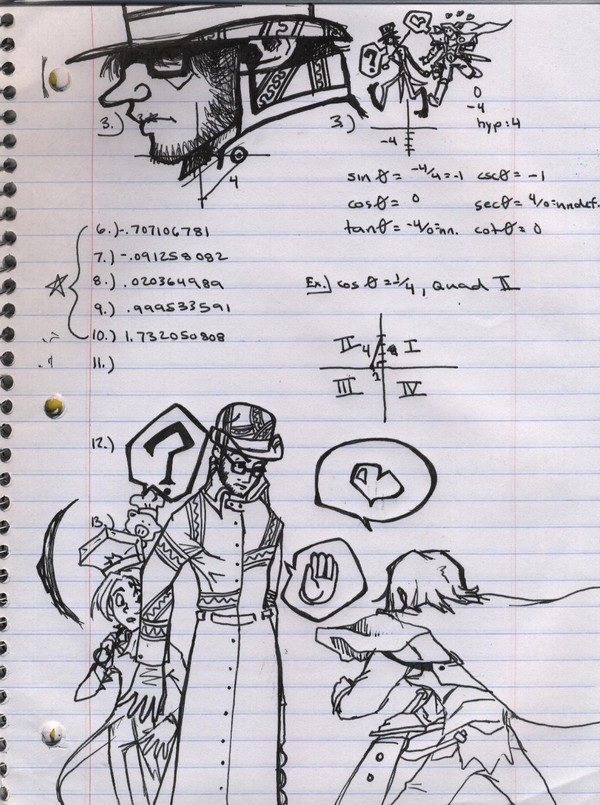 3.)
3.)
?
0
-4
hyp:4
-4
4
sin θ = -4/4=-1 cscθ = -1
cosθ = 0 secθ = 4/0=undef.
tanθ = -4/0=un. cotθ = 0
6.) -.707106781
7.) -.091258082
8.) .020364989
9.) .999533591
10.) 1.732050808
11.)
Ex.) cos θ = 1/4, Quad II
II 4 I
1
III IV
12.)
?
13.)